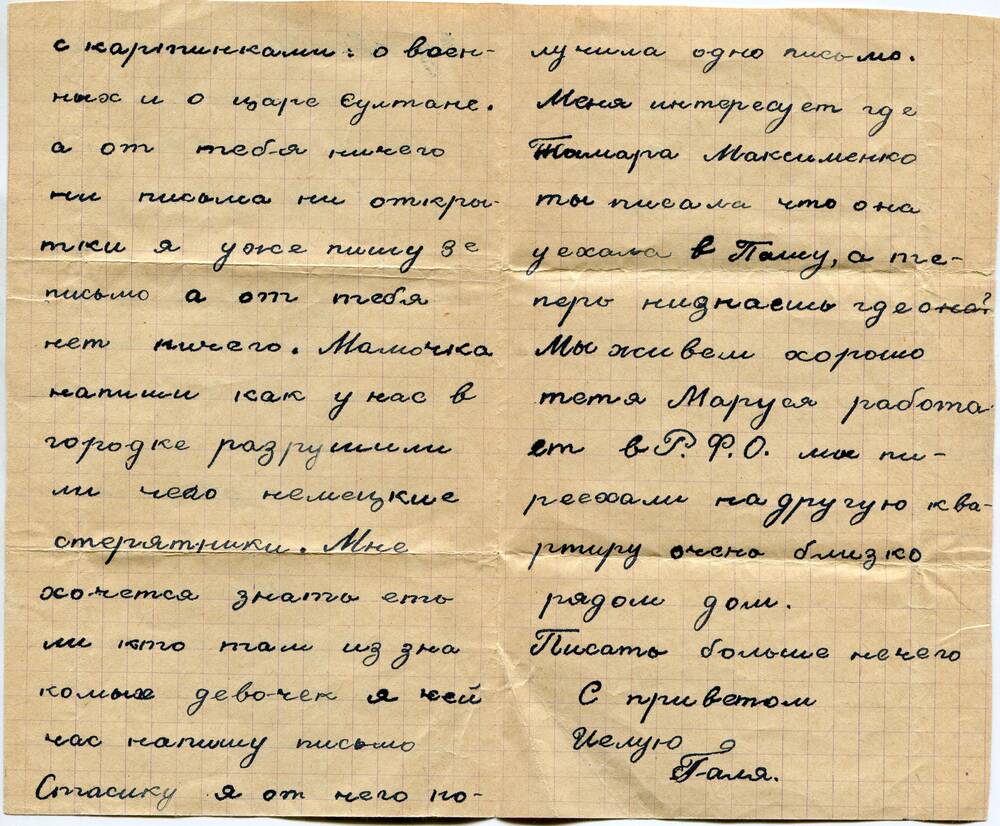 с картинками: о воен-
ных и о царе Султане.
а от тебя ничего
ни письма ни откры-
тки я уже пишу 3е
письмо а от тебя
нет ничего. Мамочка
напиши как у нас в
городке разрушили
ли чего немецкие
стерятники. Мне
хочется знать еть
ли кто там из зна
комых девочек я сей
час напишу письмо
Стасику я от него по-
лучила одно письмо.
Меня интересует где
Тамара Максименко
ты писала что она
уехала в Пашу, а те-
перь низнаешь где она?
Мы живем хорошо
тетя Маруся работа
ет в Р.Ф.О. мы пи-
реехали на другую ква-
ртиру очень близко
рядом дом.
Писать больше нечего
С приветом
Целую
Галя.